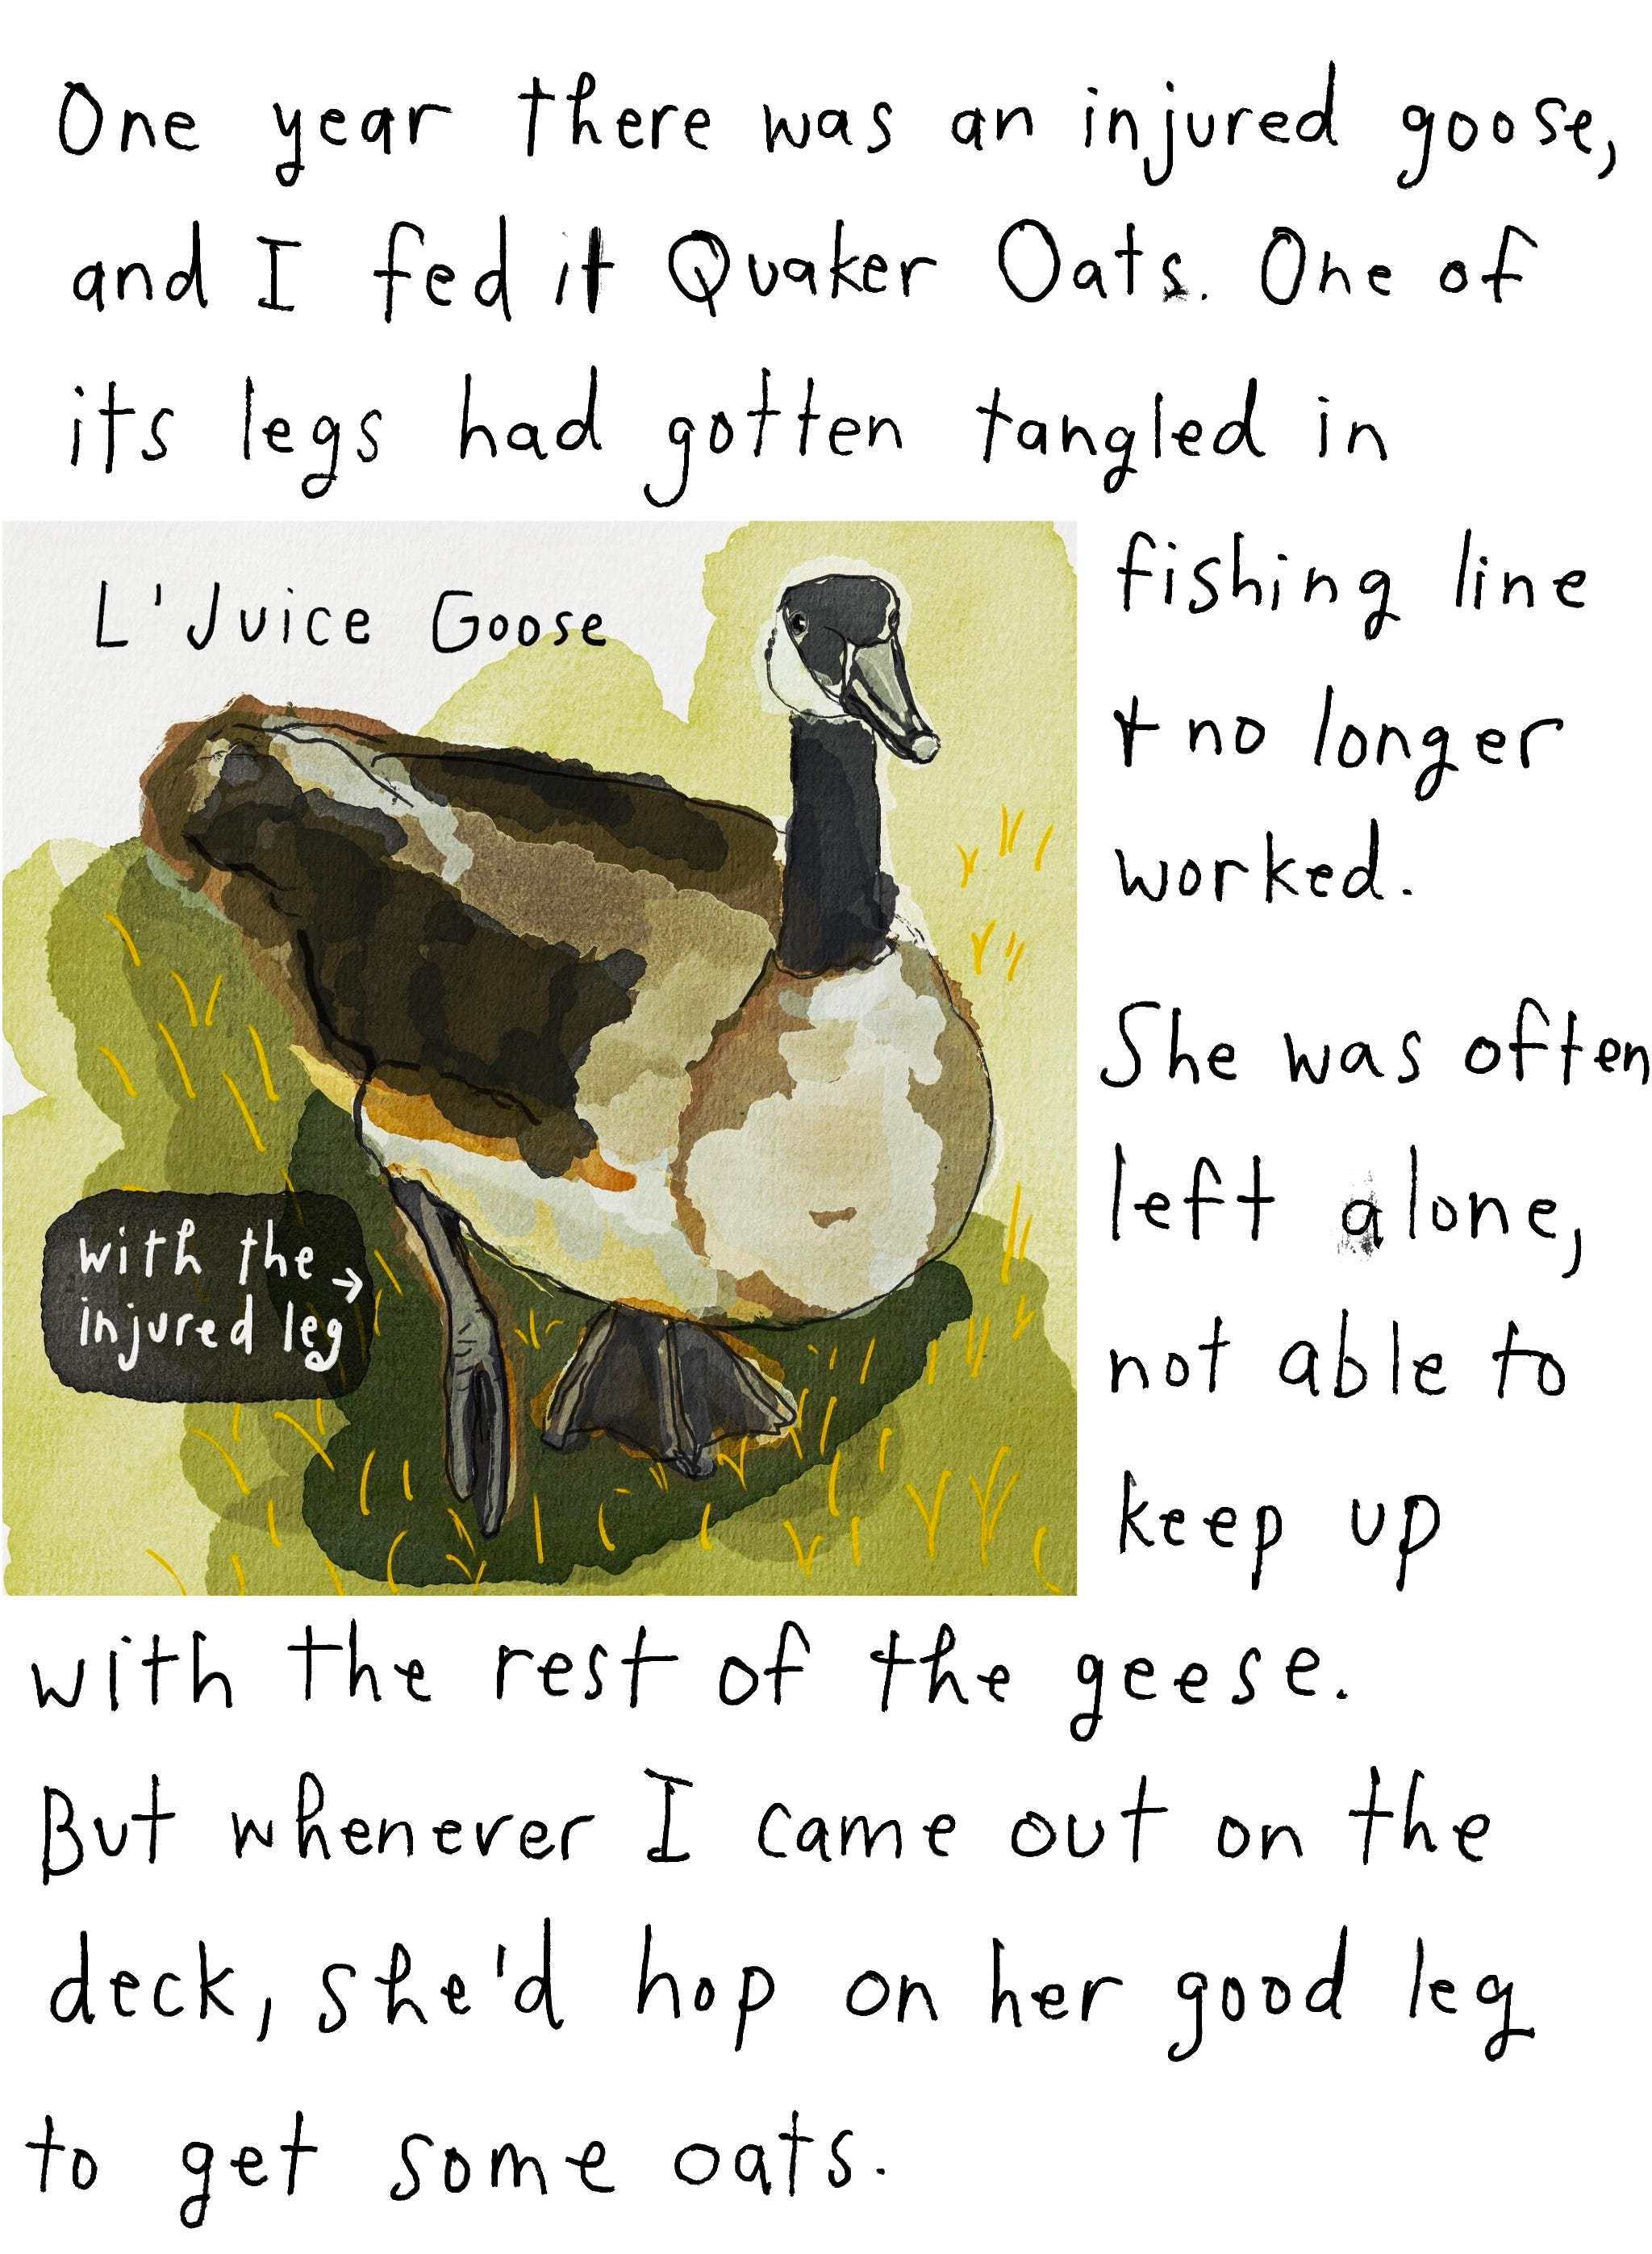 One year there was an injured goose,
and I fed it Quaker Oats. One of
its legs had gotten tangled in
fishing line
+ no longer
worked.
L'Juice Goose
with the →
injured leg
She was often
left alone,
not able to
keep up
with the rest of the geese.
But whenever I came out on the
deck, she'd hop on her good leg
to get some oats.